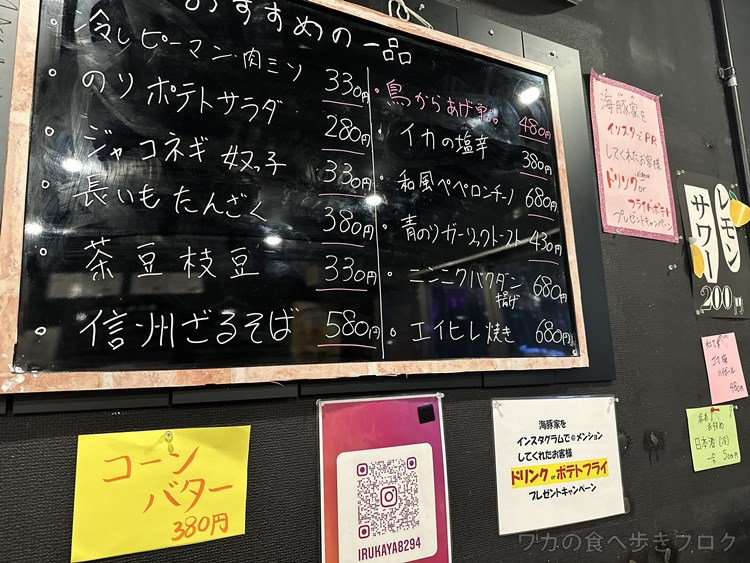 おすすめの一品
冷しピーマン・肉ミソ 330円
のりポテトサラダ 280円
ジャコネギ奴っ子 330円
長いもたんざく 380円
茶豆枝豆 330円
信州ざるそば 580円
鳥からあげ単品 480円
イカの塩辛 380円
和風ペペロンチーノ 680円
青のりガーリックトースト 430円
ニンニクバクダン揚げ 680円
エイヒレ焼き 680円
海豚家を
インスタでPR
してくれたお客様
ドリンク or
フライドポテト
プレゼントキャンペーン
レモン
サワー
200円
480円
日本酒(冷)
一合 500円
コーン
バター
380円
IRUKAYA8294
海豚家を
インスタグラムで@メンション
してくれたお客様
ドリンク or ポテトフライ
プレゼントキャンペーン
ワカの食べ歩きブログ